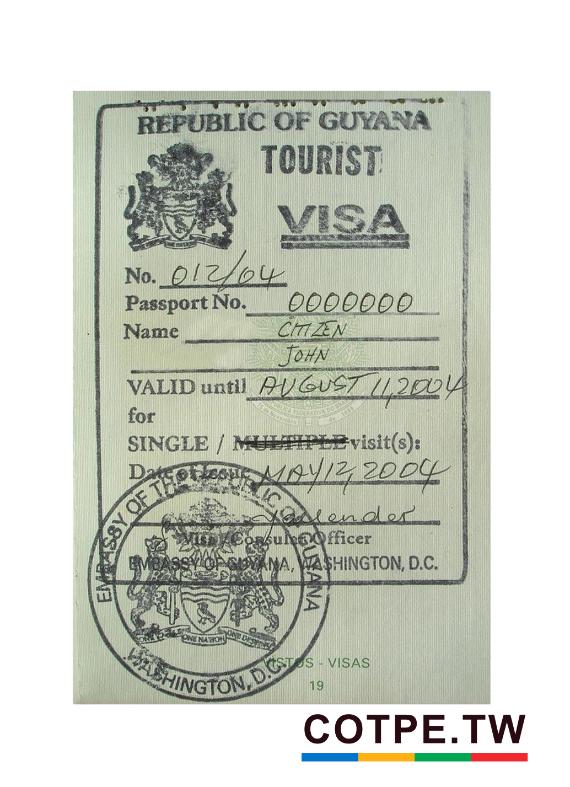 REPUBLIC OF GUYANA
TOURIST
VISA
No. 012/04
Passport No. 0000000
Name CITIZEN
JOHN
VALID until AUGUST 11, 2004
for
SINGLE / MULTIPLE visit(s):
Date of Issue MAY 12, 2004
Visa/Consular Officer
EMBASSY OF GUYANA, WASHINGTON, D.C.
EMBASSY OF THE REPUBLIC OF GUYANA
ONE PEOPLE ONE NATION ONE DESTINY
WASHINGTON, D.C.
VISTOS - VISAS
19
COTPE.TW